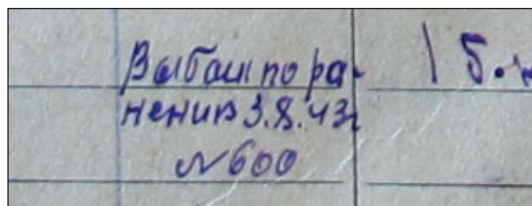 Выбыл по ра-
нению 3.8.43г
№600